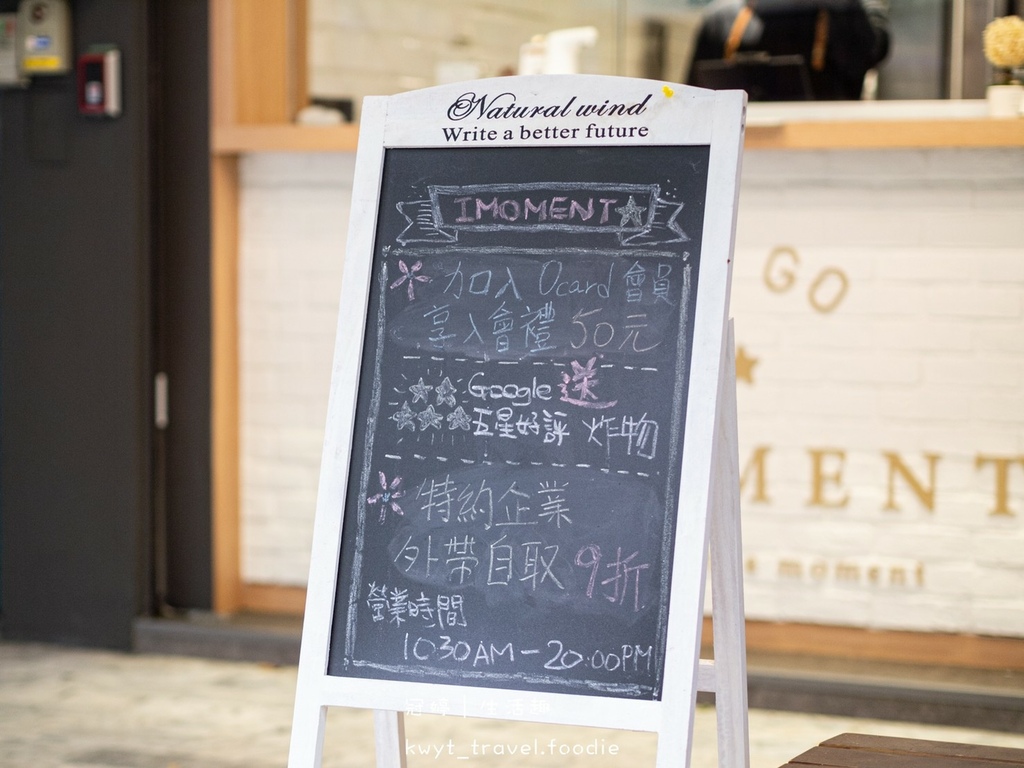 Natural wind
Write a better future
IMOMENT
加入 Ocard 會員
享入會禮 50元
Google 送
五星好評 炸物
特約企業
外帶自取 9折
營業時間
10:30AM - 20:00PM
GO
MENT
moment
kwyt_travel.foodie